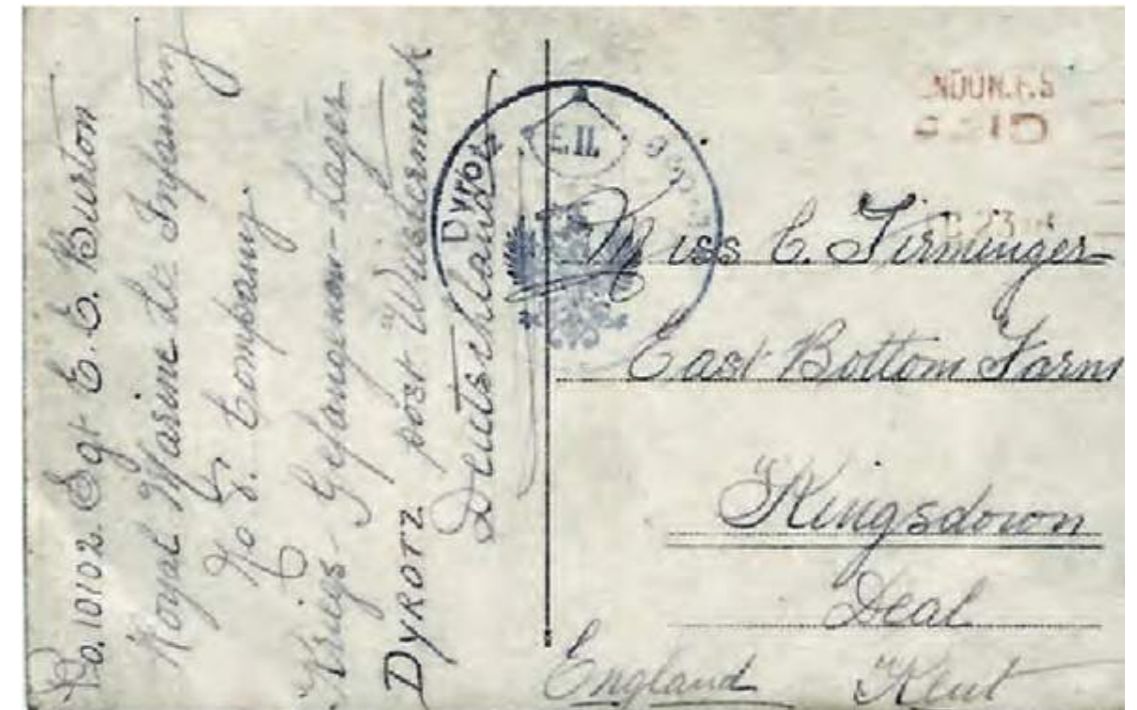 Po. 10102 Sgt E. E. Burton
Royal Marine Lt: Infantry
No 5. Company
Kriegs-Gefangenen-Lager
DYROTZ post Wustermark
Deutschland
Dyrotz
F.II.
NDON.F.S
PAID
23
Miss C. Firminger
East Bottom Farm
Kingsdown
Deal
England Kent